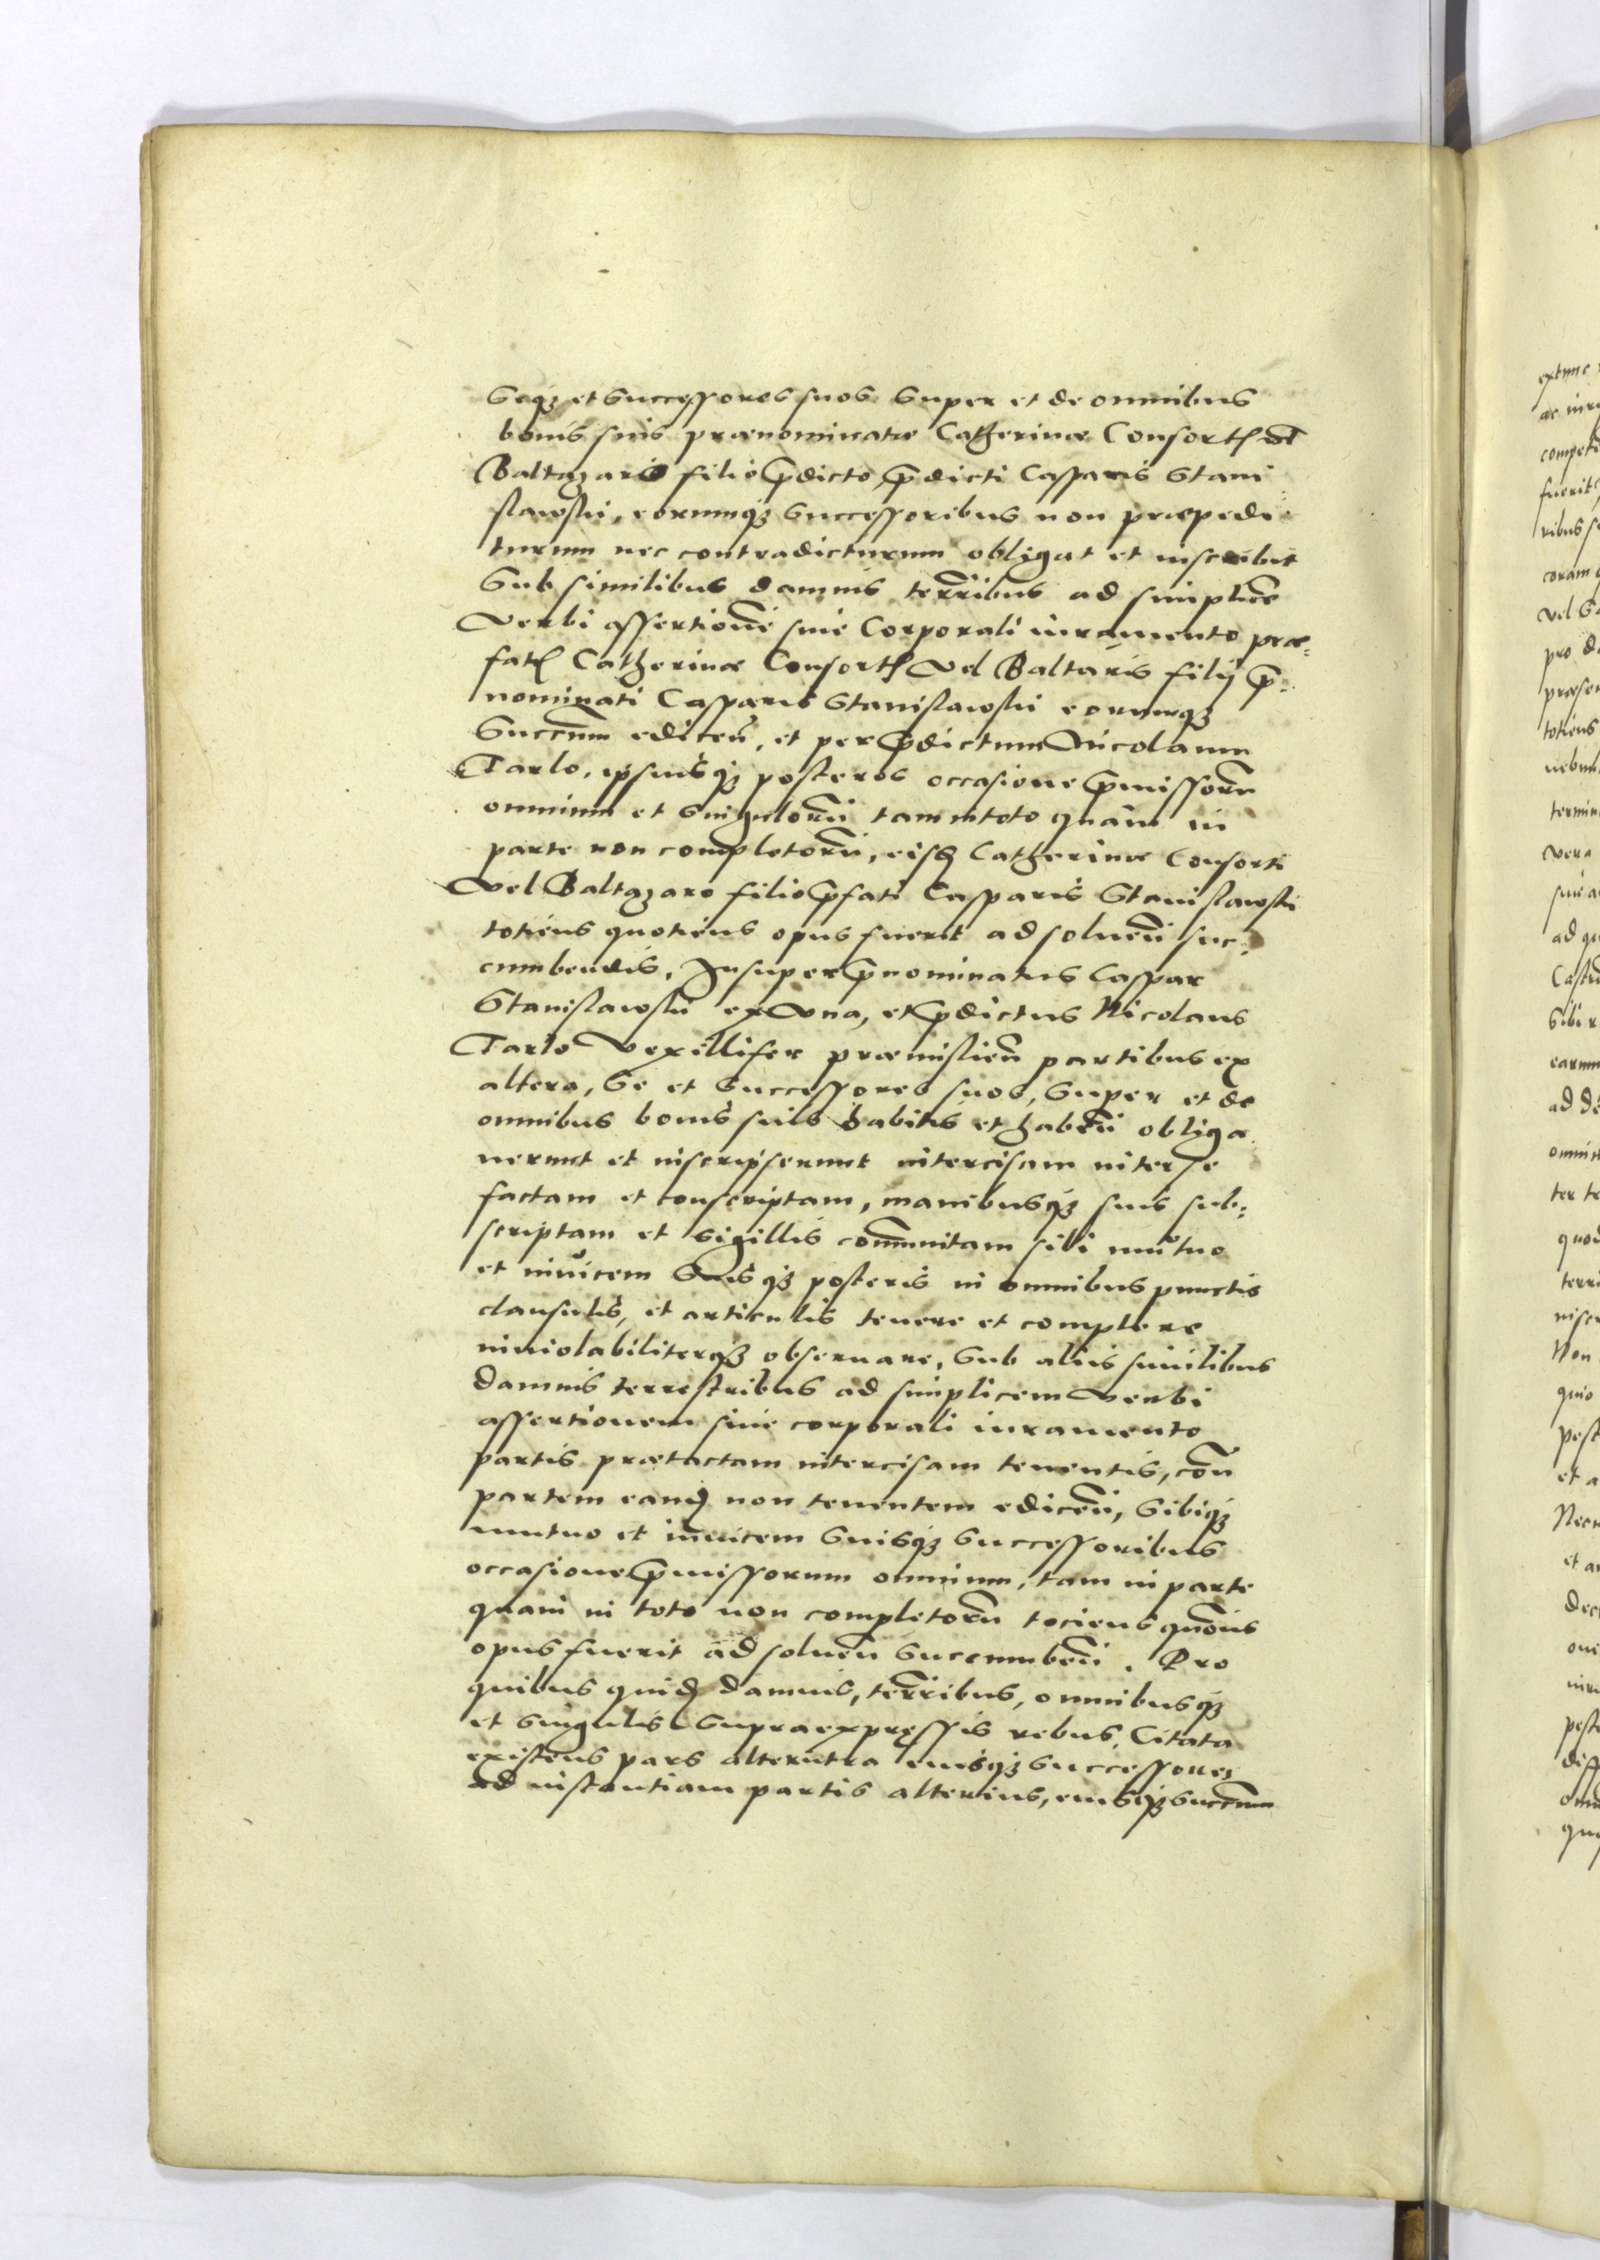 Seq3 et Successores suos Super et de omnibus
bonis suis prænominatæ Catherinæ Consorti
Baltazaris filio pdicto, pdicti Casparis Stani
slawski, eorumq3 Successoribus non præpedi
turum nec contradicturum obligat et inscribit
Sub similibus damnis terribus ad simplicē
Verbi assertionē sine Corporali iuramento præ=
fatæ Catherinæ Consortis Vel Baltaris filij p=
nominati Casparis Stanislawski eorumq3
Succum edicen, et per pdictum Nicolaum
Tarlo, ipsiusq3 posteros occasione pmissorū
omnium et Singulorū tam in toto quam in
parte non completorū, eisd Catherinæ Consorti
Vel Baltazaro filio pfati Casparis Stanislawski
totiens quotiens opus fuerit ad soluen suc=
cumbendis, Insuper pnominatus Caspar
Stanislawski ex Vna, et pdictus Nicolaus
Tarlo Vexillifer præmislien partibus ex
altera, Se et Successores suos, Super et de
omnibus bonis suis habitis et haben obliga
uerunt et inscripserunt intercisam inter se
factam et conscriptam, manibusq3 suis sub=
scriptam et sigillis communitam sibi mutuo
et inuicem Suisq3 posteris in omnibus punctis
clausulis, et articulis tenere et complere
inuiolabiliterq3 obseruare, Sub alijs similibus
damnis terrestribus ad simplicem Verbi
assertionem sine corporali iuramento
partis prætactam intercisam tenentis, con
partem eand non tenentem edicen, Sibiq3
mutuo et inuicem Suisq3 Successoribus
occasione pmissorum omnium, tam in parte
quam in toto non completorū tociens quoens
opus fuerit ad soluen Succumben. Pro
quibus quid damnis, terribus, omnibusq3
et singulis Supraexpressis rebus, Citata
existens pars alterutra eiusq3 Successores
ad instantiam partis alterius, eiusq3 Succum